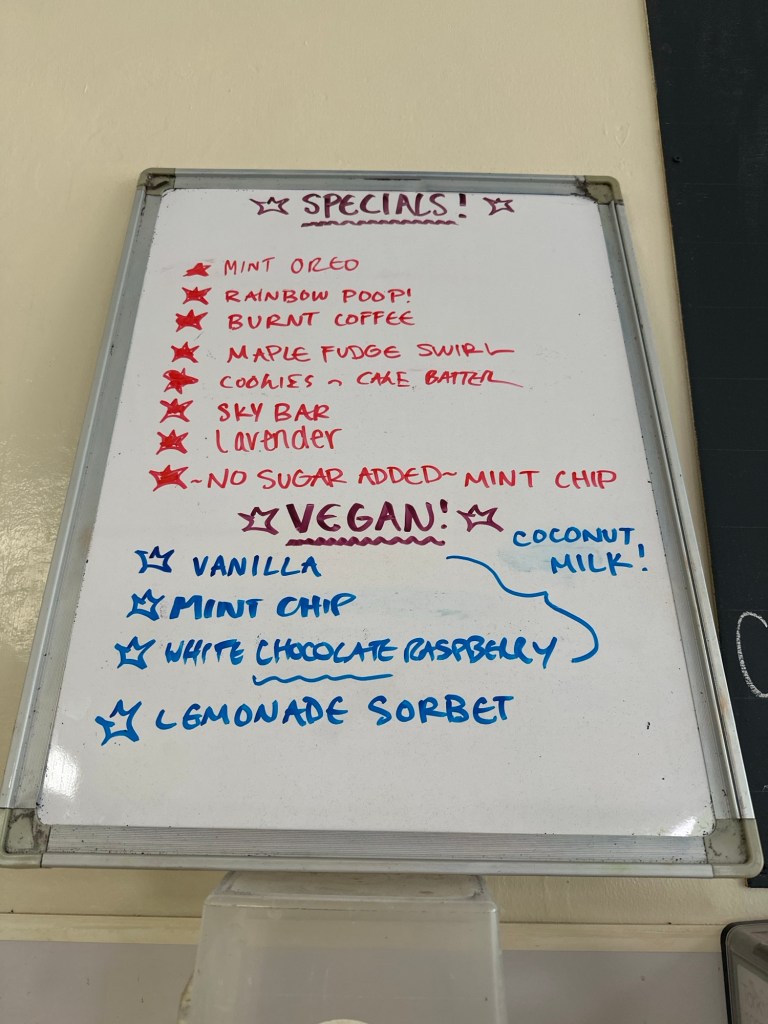 SPECIALS!
MINT OREO
RAINBOW POOP!
BURNT COFFEE
MAPLE FUDGE SWIRL
COOKIES ~ CAKE BATTER
SKY BAR
Lavender
~NO SUGAR ADDED~ MINT CHIP
VEGAN!
COCONUT
MILK!
VANILLA
MINT CHIP
WHITE CHOCOLATE RASPBERRY
LEMONADE SORBET